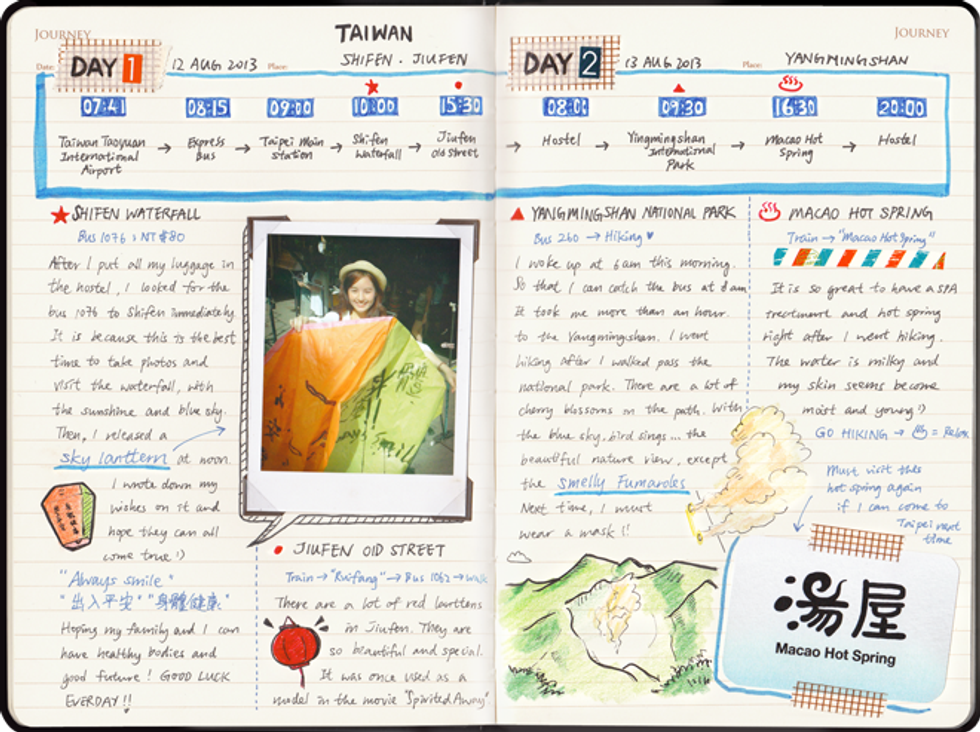 JOURNEY
TAIWAN
JOURNEY
Date:
DAY 1
12 AUG 2013
Place:
SHIFEN · JIUFEN
DAY 2
13 AUG 2013
Place:
YANGMINGSHAN
07:41
08:15
09:00
10:00
15:30
08:00
09:30
16:30
20:00
Taiwan Taoyuan
International
Airport
→
Express
Bus
→
Taipei Main
Station
→
Shifen
Waterfall
→
Jiufen
Old Street
→
Hostel
→
Yingmingshan
International
Park
→
Macao Hot
Spring
→
Hostel
★ SHIFEN WATERFALL
Bus 1076 : NT$80
After I put all my luggage in
the hostel, I looked for the
bus 1076 to Shifen immediately.
It is because this is the best
time to take photos and
visit the waterfall, with
the sunshine and blue sky.
Then, I released a
sky lanttern at noon.
I wrote down my
wishes on it and
hope they can all
come true :)
"Always smile"
"出入平安" "身體健康"
Hoping my family and I can
have healthy bodies and
good future! GOOD LUCK
EVERDAY!!
● JIUFEN OlD STREET
Train → "Ruifang" → Bus 1062 → walk
There are a lot of red lanttens
in Jiufen. They are
so biautiful and special.
It was once used as a
model in the movie "Spirited Away"
▲ YANGMINGSHAN NATIONAL PARK
Bus 260 → Hiking ♥
I woke up at 6am this morning.
So that I can catch the bus at 8am
It took me more than an hour.
to the Yangmingshan. I went
hiking after I walked pass the
national park. There are a lot of
cherry blossoms on the path. With
the blue sky, bird sings... the
beautiful nature view, except
the smelly Fumaroles
Next time, I must
wear a mask!!
♨ MACAO HOT SPRING
Train → "Macao Hot Spring"
It is so great to have a SPA
treatment and hot spring
right after I went hiking.
The water is milky and
my skin seems become
moist and young :)
GO HIKING → ♨ = Relax
Must visit thes
hot spring again
if I can come to
Taipei next
time
湯屋
Macao Hot Spring